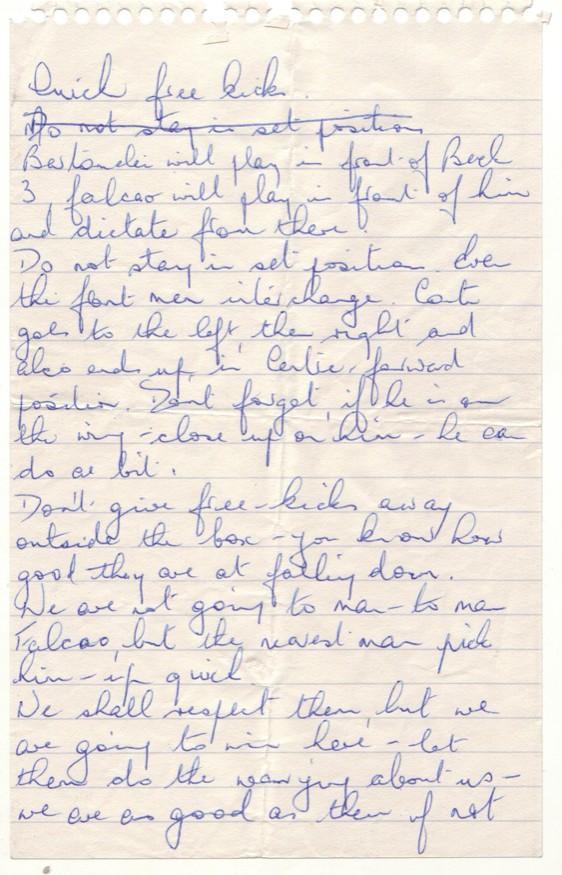 Quick free kicks.
Do not stay in set position
Bartomelei will play in front of Back
3, falcao will play in front of him
and dictate from there.
Do not stay in set position. Even
the front men interchange. Conti
goes to the left, then right and
also ends up in Centre-forward
position. Dont forget, if he is on
the wing - close up on him - he can
do a bit.
Don't give free-kicks away
outside the box - you know how
good they are at falling down.
We are not going to man-to man
Falcao, but the nearest man pick
him-up quick
We shall respect them, but we
are going to win here - let
them do the worrying about us -
we are as good as them if not